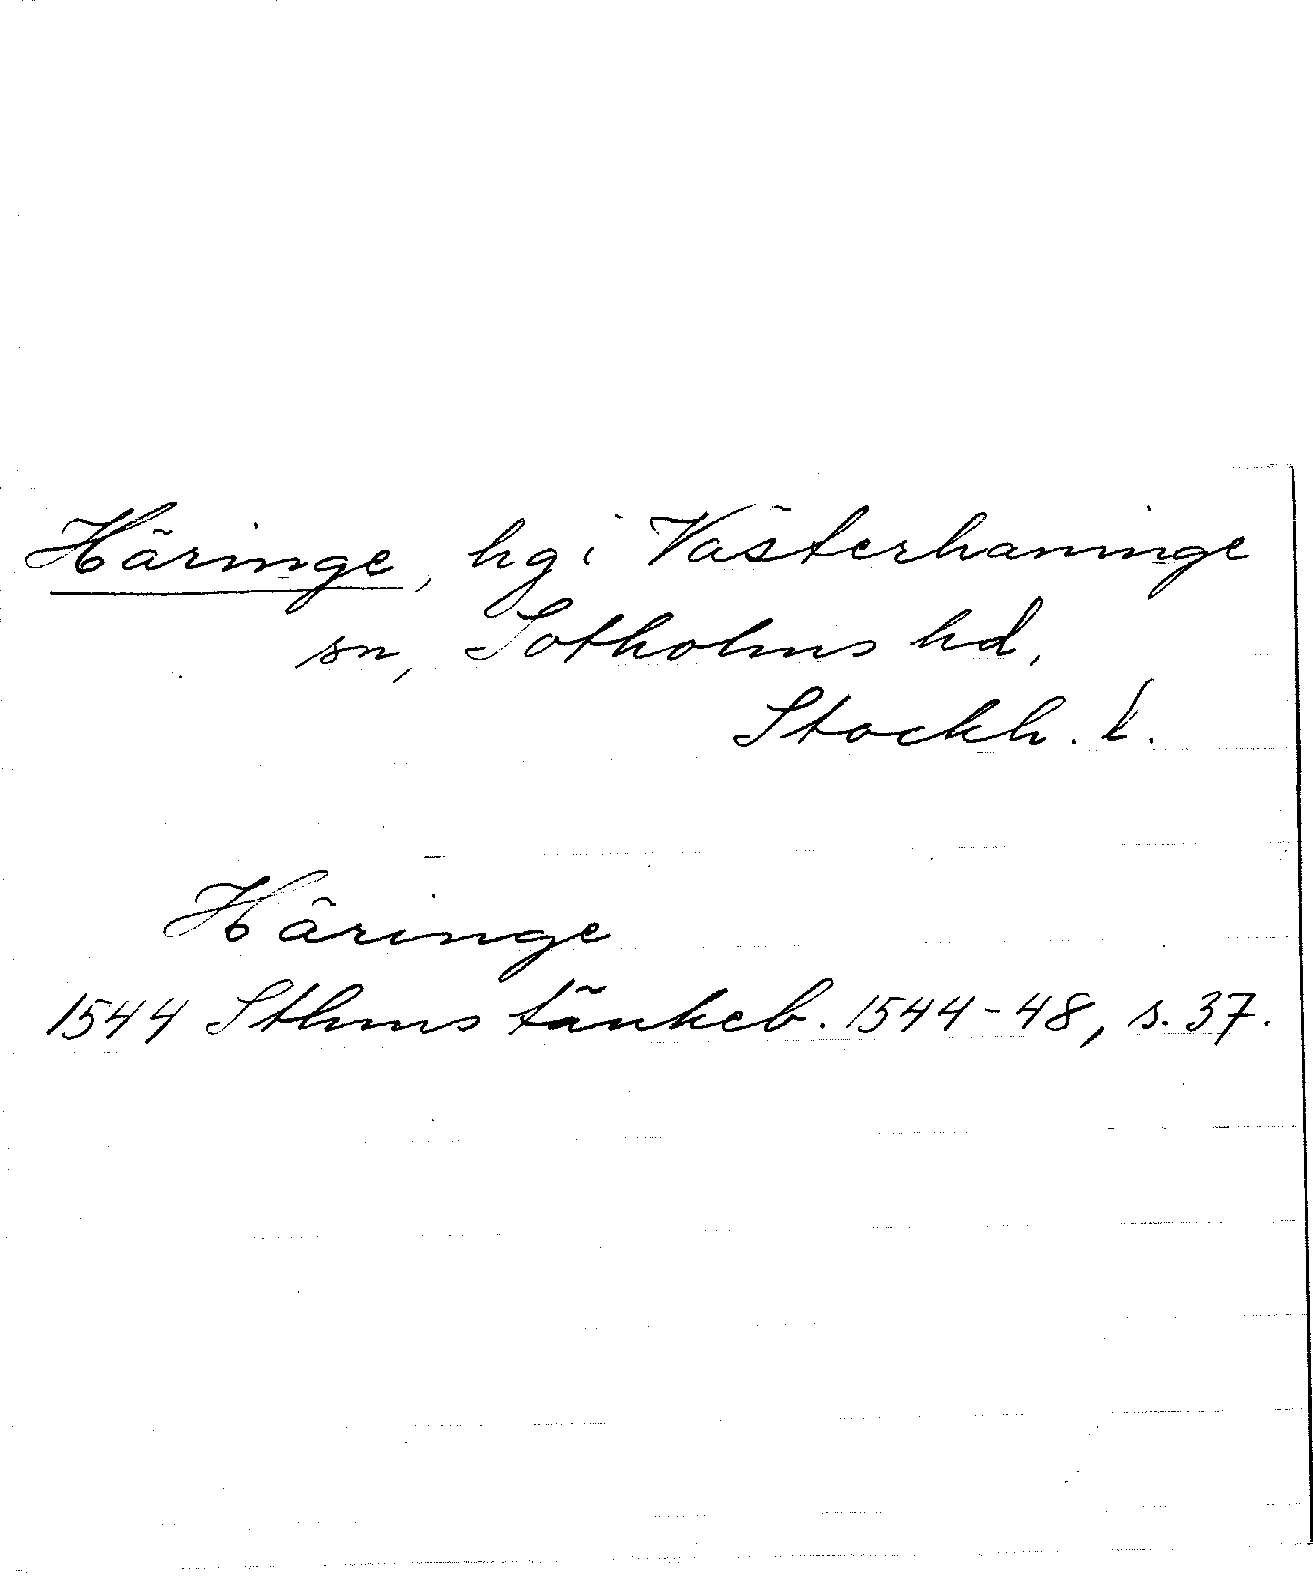 Häringe, hg i Västerhaninge
sn, Sotholms hd,
Stockh. l.
Häringe
1544 Sthms tänkeb. 1544-48, s. 37.